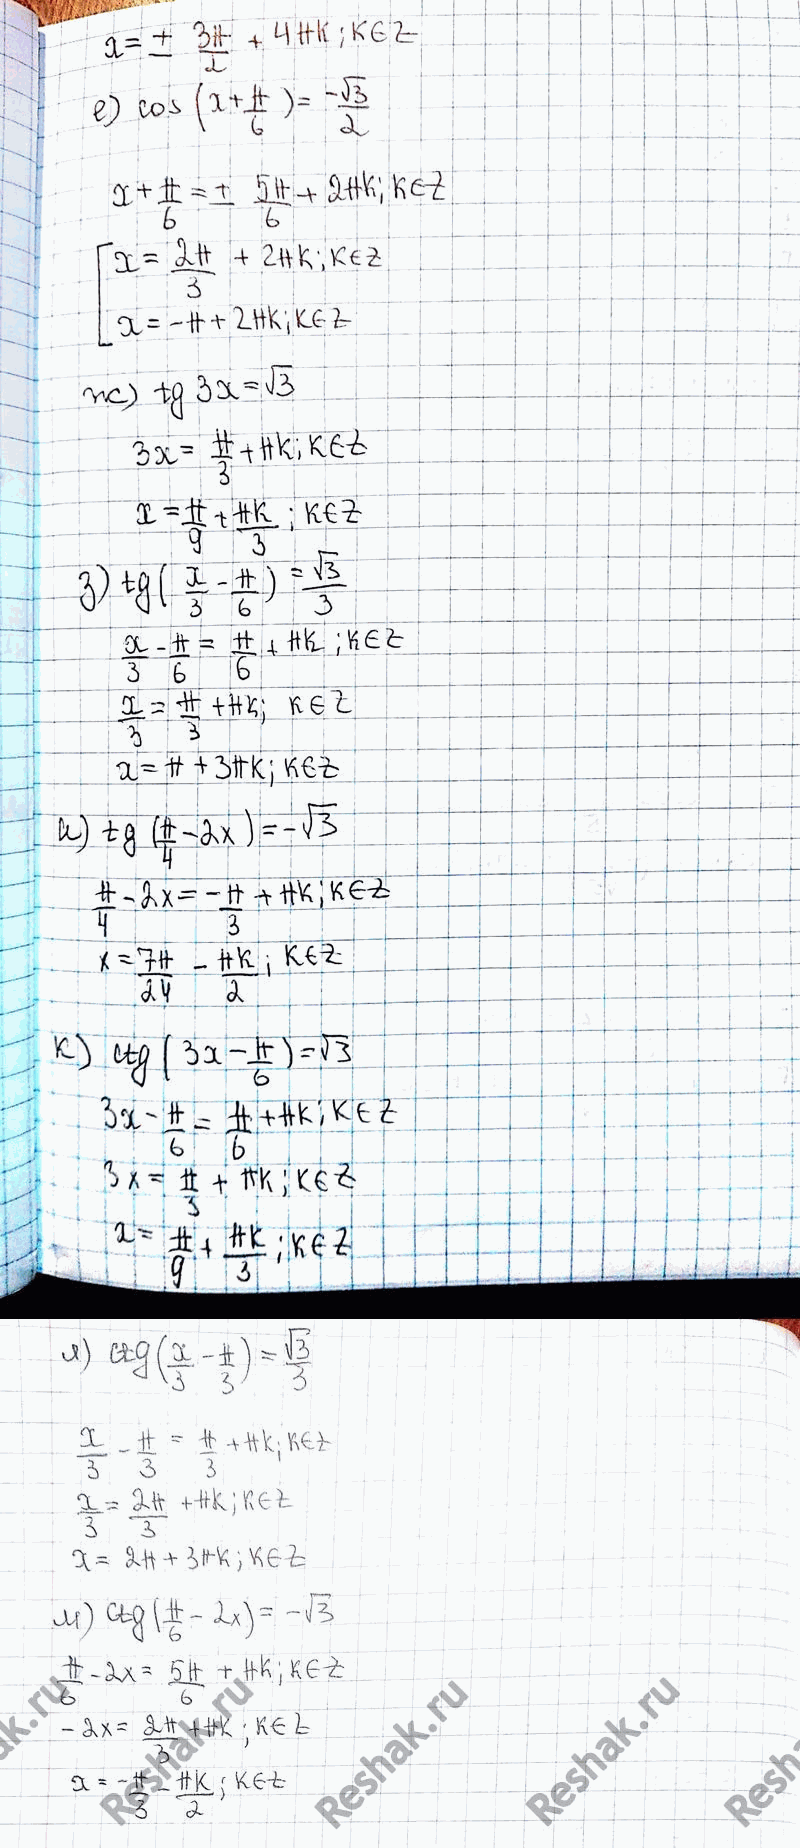 x = ± 3π/2 + 4πk; k∈Z
е) cos(x + π/6) = -√3/2
x + π/6 = ± 5π/6 + 2πk; k∈Z
[ x = 2π/3 + 2πk; k∈Z
x = -π + 2πk; k∈Z
ж) tg 3x = √3
3x = π/3 + πk; k∈Z
x = π/9 + πk/3; k∈Z
з) tg(x/3 - π/6) = √3/3
x/3 - π/6 = π/6 + πk; k∈Z
x/3 = π/3 + πk; k∈Z
x = π + 3πk; k∈Z
и) tg(π/4 - 2x) = -√3
π/4 - 2x = -π/3 + πk; k∈Z
x = 7π/24 - πk/2; k∈Z
к) ctg(3x - π/6) = √3
3x - π/6 = π/6 + πk; k∈Z
3x = π/3 + πk; k∈Z
x = π/9 + πk/3; k∈Z
л) ctg(x/3 - π/3) = √3/3
x/3 - π/3 = π/3 + πk; k∈Z
x/3 = 2π/3 + πk; k∈Z
x = 2π + 3πk; k∈Z
м) ctg(π/6 - 2x) = -√3
π/6 - 2x = 5π/6 + πk; k∈Z
-2x = 2π/3 + πk; k∈Z
x = -π/3 - πk/2; k∈Z
Reshak.ru
Reshak.ru
Reshak.ru